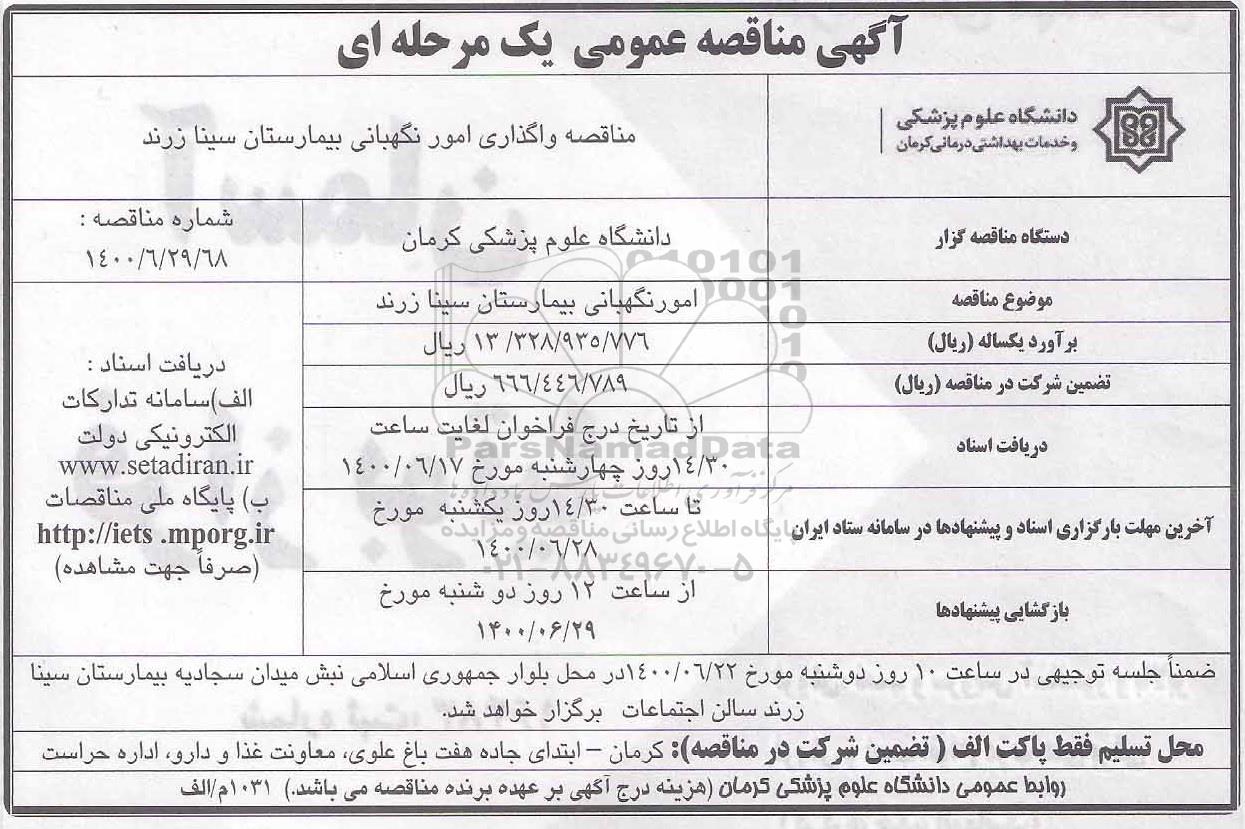 آگهی مناقصه عمومی یک مرحله ای
دانشگاه علوم پزشکی
و خدمات بهداشتی درمانی کرمان
مناقصه واگذاری امور نگهبانی بیمارستان سینا زرند
دستگاه مناقصه گزار
دانشگاه علوم پزشکی کرمان
شماره مناقصه :
۱٤۰۰/٦/۲۹/٦۸
موضوع مناقصه
امورنگهبانی بیمارستان سینا زرند
برآورد یکساله (ریال)
۱۳/۳۲۸/۹۳٥/۷۷٦ ریال
تضمین شرکت در مناقصه (ریال)
٦٦٦/٤٤٦/۷۸۹ ریال
دریافت اسناد
از تاریخ درج فراخوان لغایت ساعت
۱٤/۳۰روز چهارشنبه مورخ ۱٤۰۰/۰٦/۱۷
آخرین مهلت بارگزاری اسناد و پیشنهادها در سامانه ستاد ایران
تا ساعت ۱٤/۳۰روز یکشنبه مورخ
۱٤۰۰/۰٦/۲۸
بازگشایی پیشنهادها
از ساعت ۱۲ روز دو شنبه مورخ
۱۴۰۰/۰۶/۲۹
دریافت اسناد :
الف)سامانه تدارکات
الکترونیکی دولت
www.setadiran.ir
ب) پایگاه ملی مناقصات
http://iets .mporg.ir
(صرفاً جهت مشاهده)
ضمناً جلسه توجیهی در ساعت ۱۰ روز دوشنبه مورخ ۱٤۰۰/۰٦/۲۲در محل بلوار جمهوری اسلامی نبش میدان سجادیه بیمارستان سینا
زرند سالن اجتماعات برگزار خواهد شد.
محل تسلیم فقط پاکت الف ( تضمین شرکت در مناقصه): کرمان – ابتدای جاده هفت باغ علوی، معاونت غذا و دارو، اداره حراست
روابط عمومی دانشگاه علوم پزشکی کرمان (هزینه درج آگهی بر عهده برنده مناقصه می باشد.) ۱۰۳۱م/الف
ParsNamadData
مرکز فرآوری اطلاعات پارس نماد داده ها
پایگاه اطلاع رسانی مناقصه و مزایده
۰۲۱-۸۸۳۴۹۶۷۰-۵